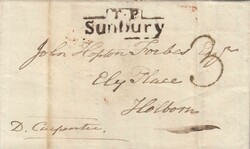 T.P
Sunbury
John Hopton Forbes Esqr
3
Ely Place
Holborn
D. Carpenter